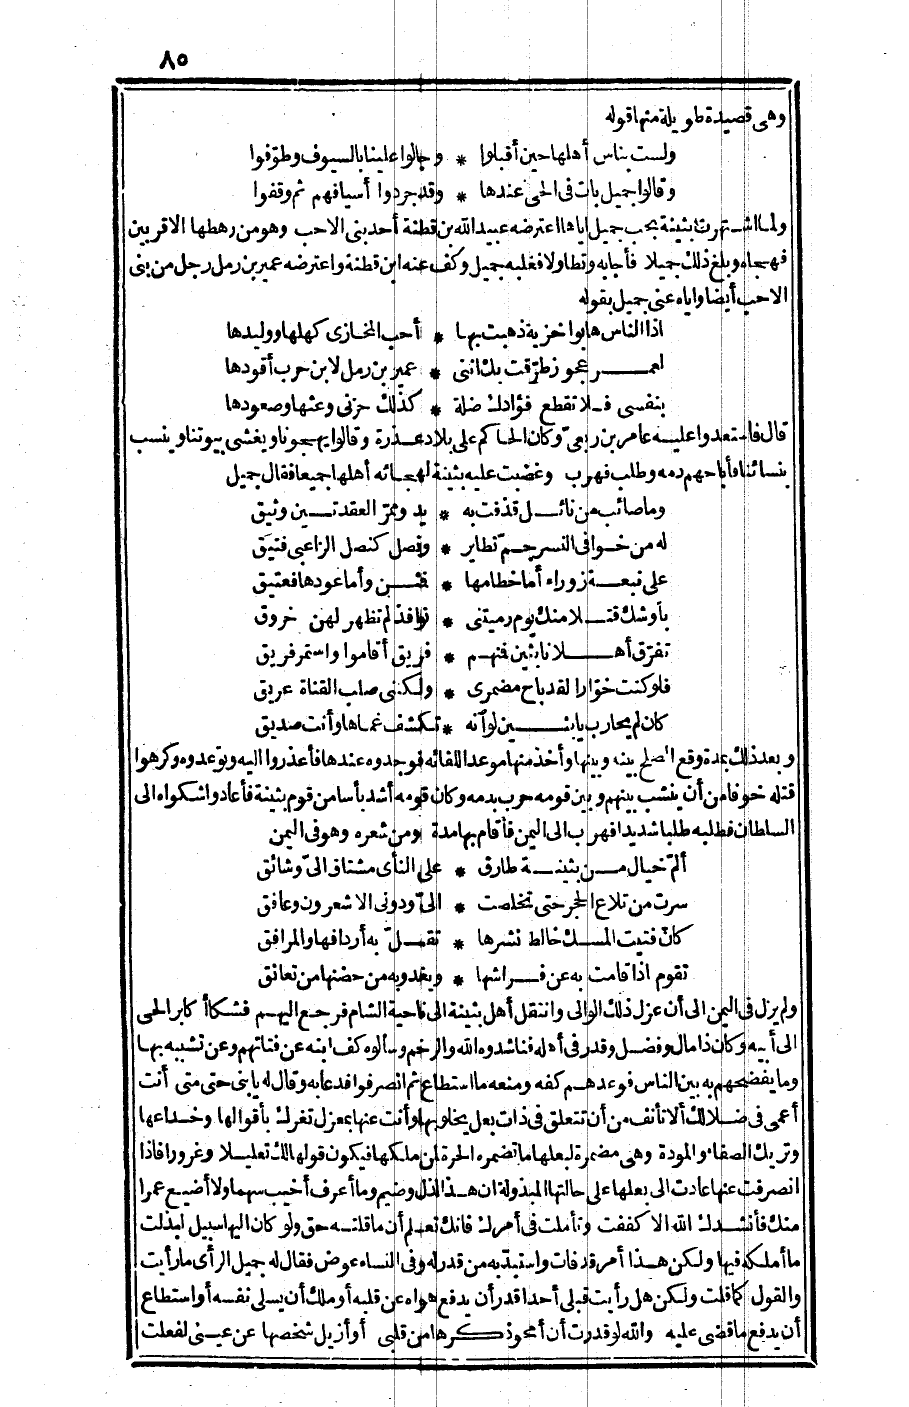 ٨٥
وهى قصيدة طويلة منها قوله
ولست بناس أهلها حين أقبلوا * وجالوا علينا بالسيوف وطوّفوا
وقالوا جميل بات فى الحى عندها * وقد جردوا أسيافهم ثم وقفوا
ولما اشتهرت بثينة بحب جميل اياها اعترضه عبيد الله بن قطنة أحد بنى الاحب وهو من رهطها الاقربين
فهجاه وبلغ ذلك جميلا فأجابه وتطاولا فغلبه جميل وكف عنه ابن قطنة واعترضه عمير بن رمل رجل من بنى
الاحب أيضا واياه عنى جميل بقوله
اذا الناس هابوا خزية ذهبت بها * أحب المخازى كهلها ووليدها
لعمر عجوز طرّقت بك اننى * عمير بن رمل لابن حرب أقودها
بنفسى فلا تقطع فؤادك ضلة * كذلك حزنى وعثها وصعودها
قال فاستعدوا عليه عامر بن ربعىّ وكان الحاكم على بلاد عذرة وقالوا يهجونا ويغشى بيوتنا وينسب
بنسائنا فأباحهم دمه وطلب فهرب وغضبت عليه بثينة لهجائه أهلها جميعا فقال جميل
وما صائب من نائل قذفت به * يد وممرّ العقدتين وثيق
له من خوافى النسر حمّ نظاير * ونصل كنصل الزاعبى فتيق
على نبعة زوراء أما خطامها * فمتن وأما عودها فعتيق
بأوشك قتلا منك يوم رميتنى * نوافذ لم تظهر لهن خروق
تفرّق أهلانا بثين فمنهم * فريق أقاموا واستمر فريق
فلو كنت خوّارا لقد باح مضمرى * ولكننى صلب القناة عريق
كان لم يحارب يا بثين لو أنه * تكشف غماها وأنت صديق
وبعد ذلك بمدة وقع الصلح بينه وبينها وأخذ منها موعدا للقائه فوجدوه عندها فأعذروا اليه وتوعدوه وكرهوا
قتله خوفا من أن ينشب بينهم وبين قومه حرب بدمه وكان قومه أشد بأسا من قوم بثينة فأعادوا شكواه الى
السلطان فطلبه طلبا شديدا فهرب الى اليمن فأقام بها مدة ومن شعره وهو فى اليمن
ألمّ خيال من بثينة طارق * على النأى مشتاق الىّ وشائق
سرت من تلاع الحجر حتى تخلصت * الىّ ودونى الاشعرون وغافق
كأن فتيت المسك خالط نشرها * تقملّ به أردافها والمرافق
تقوم اذا قامت به عن فراشها * ويغدو به من حضنها من تعانق
ولم يزل فى اليمن الى أن عزل ذلك الوالى وانتقل أهل بثينة الى ناحية الشام فرجع اليهم فشكا أكابر الحى
الى أبيه وكان ذا مال وفضل وقدر فى أهله فناشدوه الله والرحم وسألوه كف ابنه عن فتاتهم وعن تشبيبه بها
وما يفضحهم به بين الناس فوعدهم كفه ومنعه ما استطاع ثم انصرفوا فدعا به وقال له يا بنى حتى متى أنت
أعمى فى ضلالك ألا تأنف من أن تتعلق فى ذات بعل يخلو بها وأنت عنها بمعزل تغرك بأقوالها وخداعها
وتريك الصفاء والمودة وهى مضمرة لبعلها ما تضمره الحرة لمن ملكها فيكون قولها لك تعليلا وغرورا فاذا
انصرفت عنها عادت الى بعلها على حالتها المبذولة ان هذا لذل وضيم وما أعرف أخيب سهما ولا أضيع عمرا
منك فأنشدك الله الا كففت وتأملت فى أمرك فانك تعلم أن ما قلته حق ولو كان اليها سبيل لبذلت
ما أملكه فيها ولكن هذا أمر قد فات واستبد به من قدر له وفى النساء عوض فقال له جميل الرأى ما رأيت
والقول كما قلت ولكن هل رأيت قبلى أحدا قدر أن يدفع هواه عن قلبه أو ملك أن يسلى نفسه أو استطاع
أن يدفع ما قضى عليه والله لو قدرت أن أمحو ذكرها من قلبى أو أزيل شخصها عن عينى لفعلت